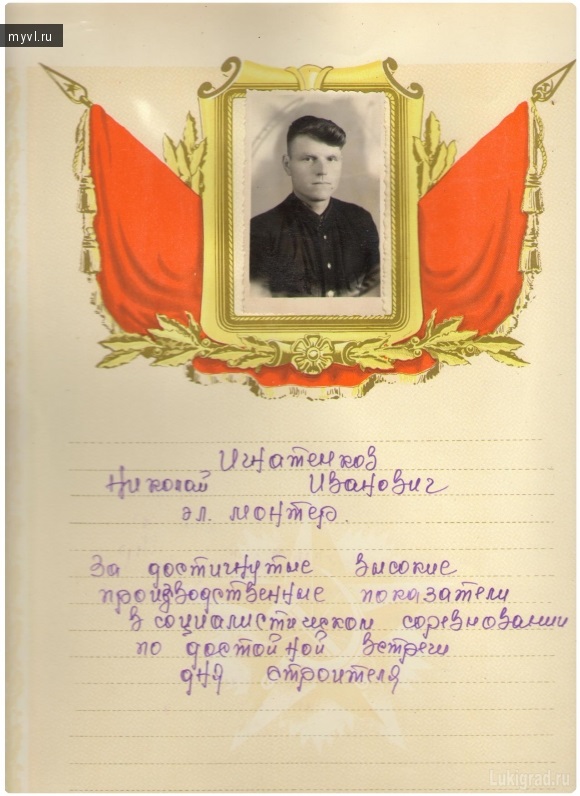 myvl.ru
Игнатенков
Николай Иванович
эл. монтер.
За достигнутые высокие
производственные показатели
в социалистическом соревновании
по достойной встречи
дня строителя
Lukigrad.ru